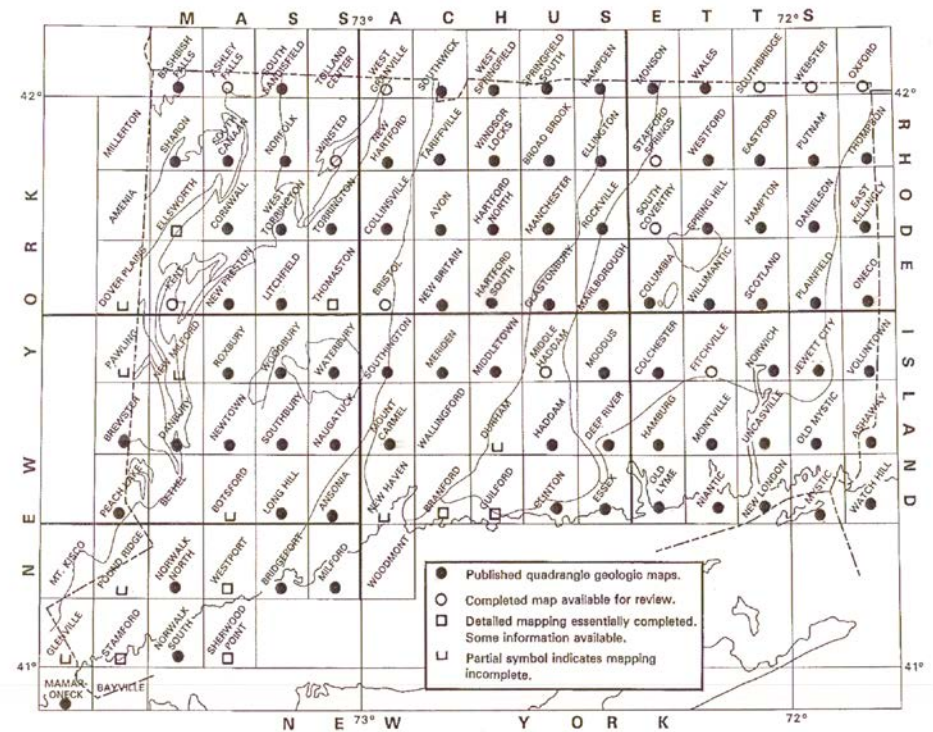 MASSACHUSETTS
73°
72°
BASHBISH FALLS
ASHLEY FALLS
SOUTH SANDISFIELD
TOLLAND CENTER
WEST GRANVILLE
SOUTHWICK
WEST SPRINGFIELD
SPRINGFIELD SOUTH
HAMPDEN
MONSON
WALES
SOUTHBRIDGE
WEBSTER
OXFORD
42°
42°
MILLERTON
SHARON
SOUTH CANAAN
NORFOLK
WINSTED
NEW HARTFORD
TARIFFVILLE
WINDSOR LOCKS
BROAD BROOK
ELLINGTON
STAFFORD SPRINGS
WESTFORD
EASTFORD
PUTNAM
THOMPSON
AMENIA
ELLSWORTH
CORNWALL
WEST TORRINGTON
TORRINGTON
COLLINSVILLE
AVON
HARTFORD NORTH
MANCHESTER
ROCKVILLE
SOUTH COVENTRY
SPRING HILL
HAMPTON
DANIELSON
EAST KILLINGLY
DOVER PLAINS
KENT
NEW PRESTON
LITCHFIELD
THOMASTON
BRISTOL
NEW BRITAIN
HARTFORD SOUTH
GLASTONBURY
MARLBOROUGH
COLUMBIA
WILLIMANTIC
SCOTLAND
PLAINFIELD
ONECO
PAWLING
NEW MILFORD
ROXBURY
WOODBURY
WATERBURY
SOUTHINGTON
MERIDEN
MIDDLETOWN
MIDDLE HADDAM
MOODUS
COLCHESTER
FITCHVILLE
NORWICH
JEWETT CITY
VOLUNTOWN
BREWSTER
DANBURY
NEWTOWN
SOUTHBURY
NAUGATUCK
MOUNT CARMEL
WALLINGFORD
DURHAM
HADDAM
DEEP RIVER
HAMBURG
MONTVILLE
UNCASVILLE
OLD MYSTIC
ASHAWAY
PEACH LAKE
BETHEL
BOTSFORD
LONG HILL
ANSONIA
NEW HAVEN
BRANFORD
GUILFORD
CLINTON
ESSEX
OLD LYME
NIANTIC
NEW LONDON
MYSTIC
WATCH HILL
MT. KISCO
POUND RIDGE
NORWALK NORTH
WESTPORT
BRIDGEPORT
MILFORD
WOODMONT
GLENVILLE
STAMFORD
NORWALK SOUTH
SHERWOOD POINT
41°
41°
MAMARONECK
BAYVILLE
Published quadrangle geologic maps.
Completed map available for review.
Detailed mapping essentially completed.
Some information available.
Partial symbol indicates mapping
incomplete.
NEW YORK
RHODE ISLAND
73°
72°
NEW YORK